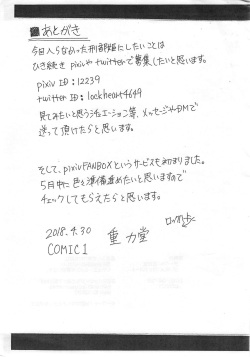 ■あとがき
今日入らなかった刑部姫にしたいことは
ひき続き pixivや twitterで募集したいと思います。
pixiv ID:12239
twitter ID:lockheart4649
見てみたいと思うシチュエーション等、メッセージやDMで
送って頂けたらと思います。
そして、pixivFANBOXというサービスも初まりました。
5月中に色々準備進めたいと思いますので
チェックしてもらえたらと思います。
2018.4.30
COMIC1
重力堂